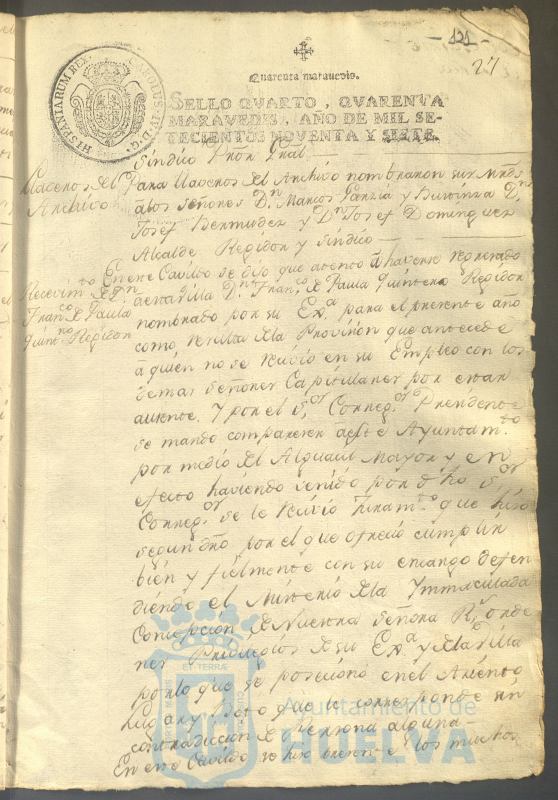 - 121 -
27
HISPANIARUM REX CAROLUS IV D. G.
Quarenta maravedis.
SELLO QVARTO, QVARENTA
MARAVEDIS, AÑO DE MIL SE-
TECIENTOS NOVENTA Y SIETE.
Síndico Pror. Gral.
Llaveros del Archivo
Para Llaveros del Archivo nombraron sus Mrds
á los señores Dn. Marcos Garzia y Dn.
Josef Bermudez y Dn. Josef Dominguez
Alcalde Regidor y Síndico
Recevimto. de Dn. Franco. de Paula Quintero Regidor
En este Cavildo se dijo que atento á haverse regresado
á esta Villa Dn. Franco. de Paula Quintero Regidor
nombrado por su Exa. para el presente año
como resulta de la Provision que antecede
a quien no se recivió en su Empleo con los
demas señores Capitulares por estar
ausente. Y por el Sor. Corregor. Presidente
se mando comparecer ante este Ayuntamto.
por medio del Alguacil Mayor y en
efecto haviendo venido por dho Sor.
Corregor. se le recivió Juramto. que hizo
segun dro por el que ofreció cumplir
bien y fielmente con su encargo defen
diendo el Misterio de la Immaculada
Concepcion de Nuestra Señora Rl. orde
nes Privilegios de su Exa. y de la Villa
por lo que se posecionó en el Asiento
Lugar y Voto que le corresponde sin
contradiccion de Persona alguna
En este Cavildo se hizo presente los muchos
Ayuntamiento de
HUELVA